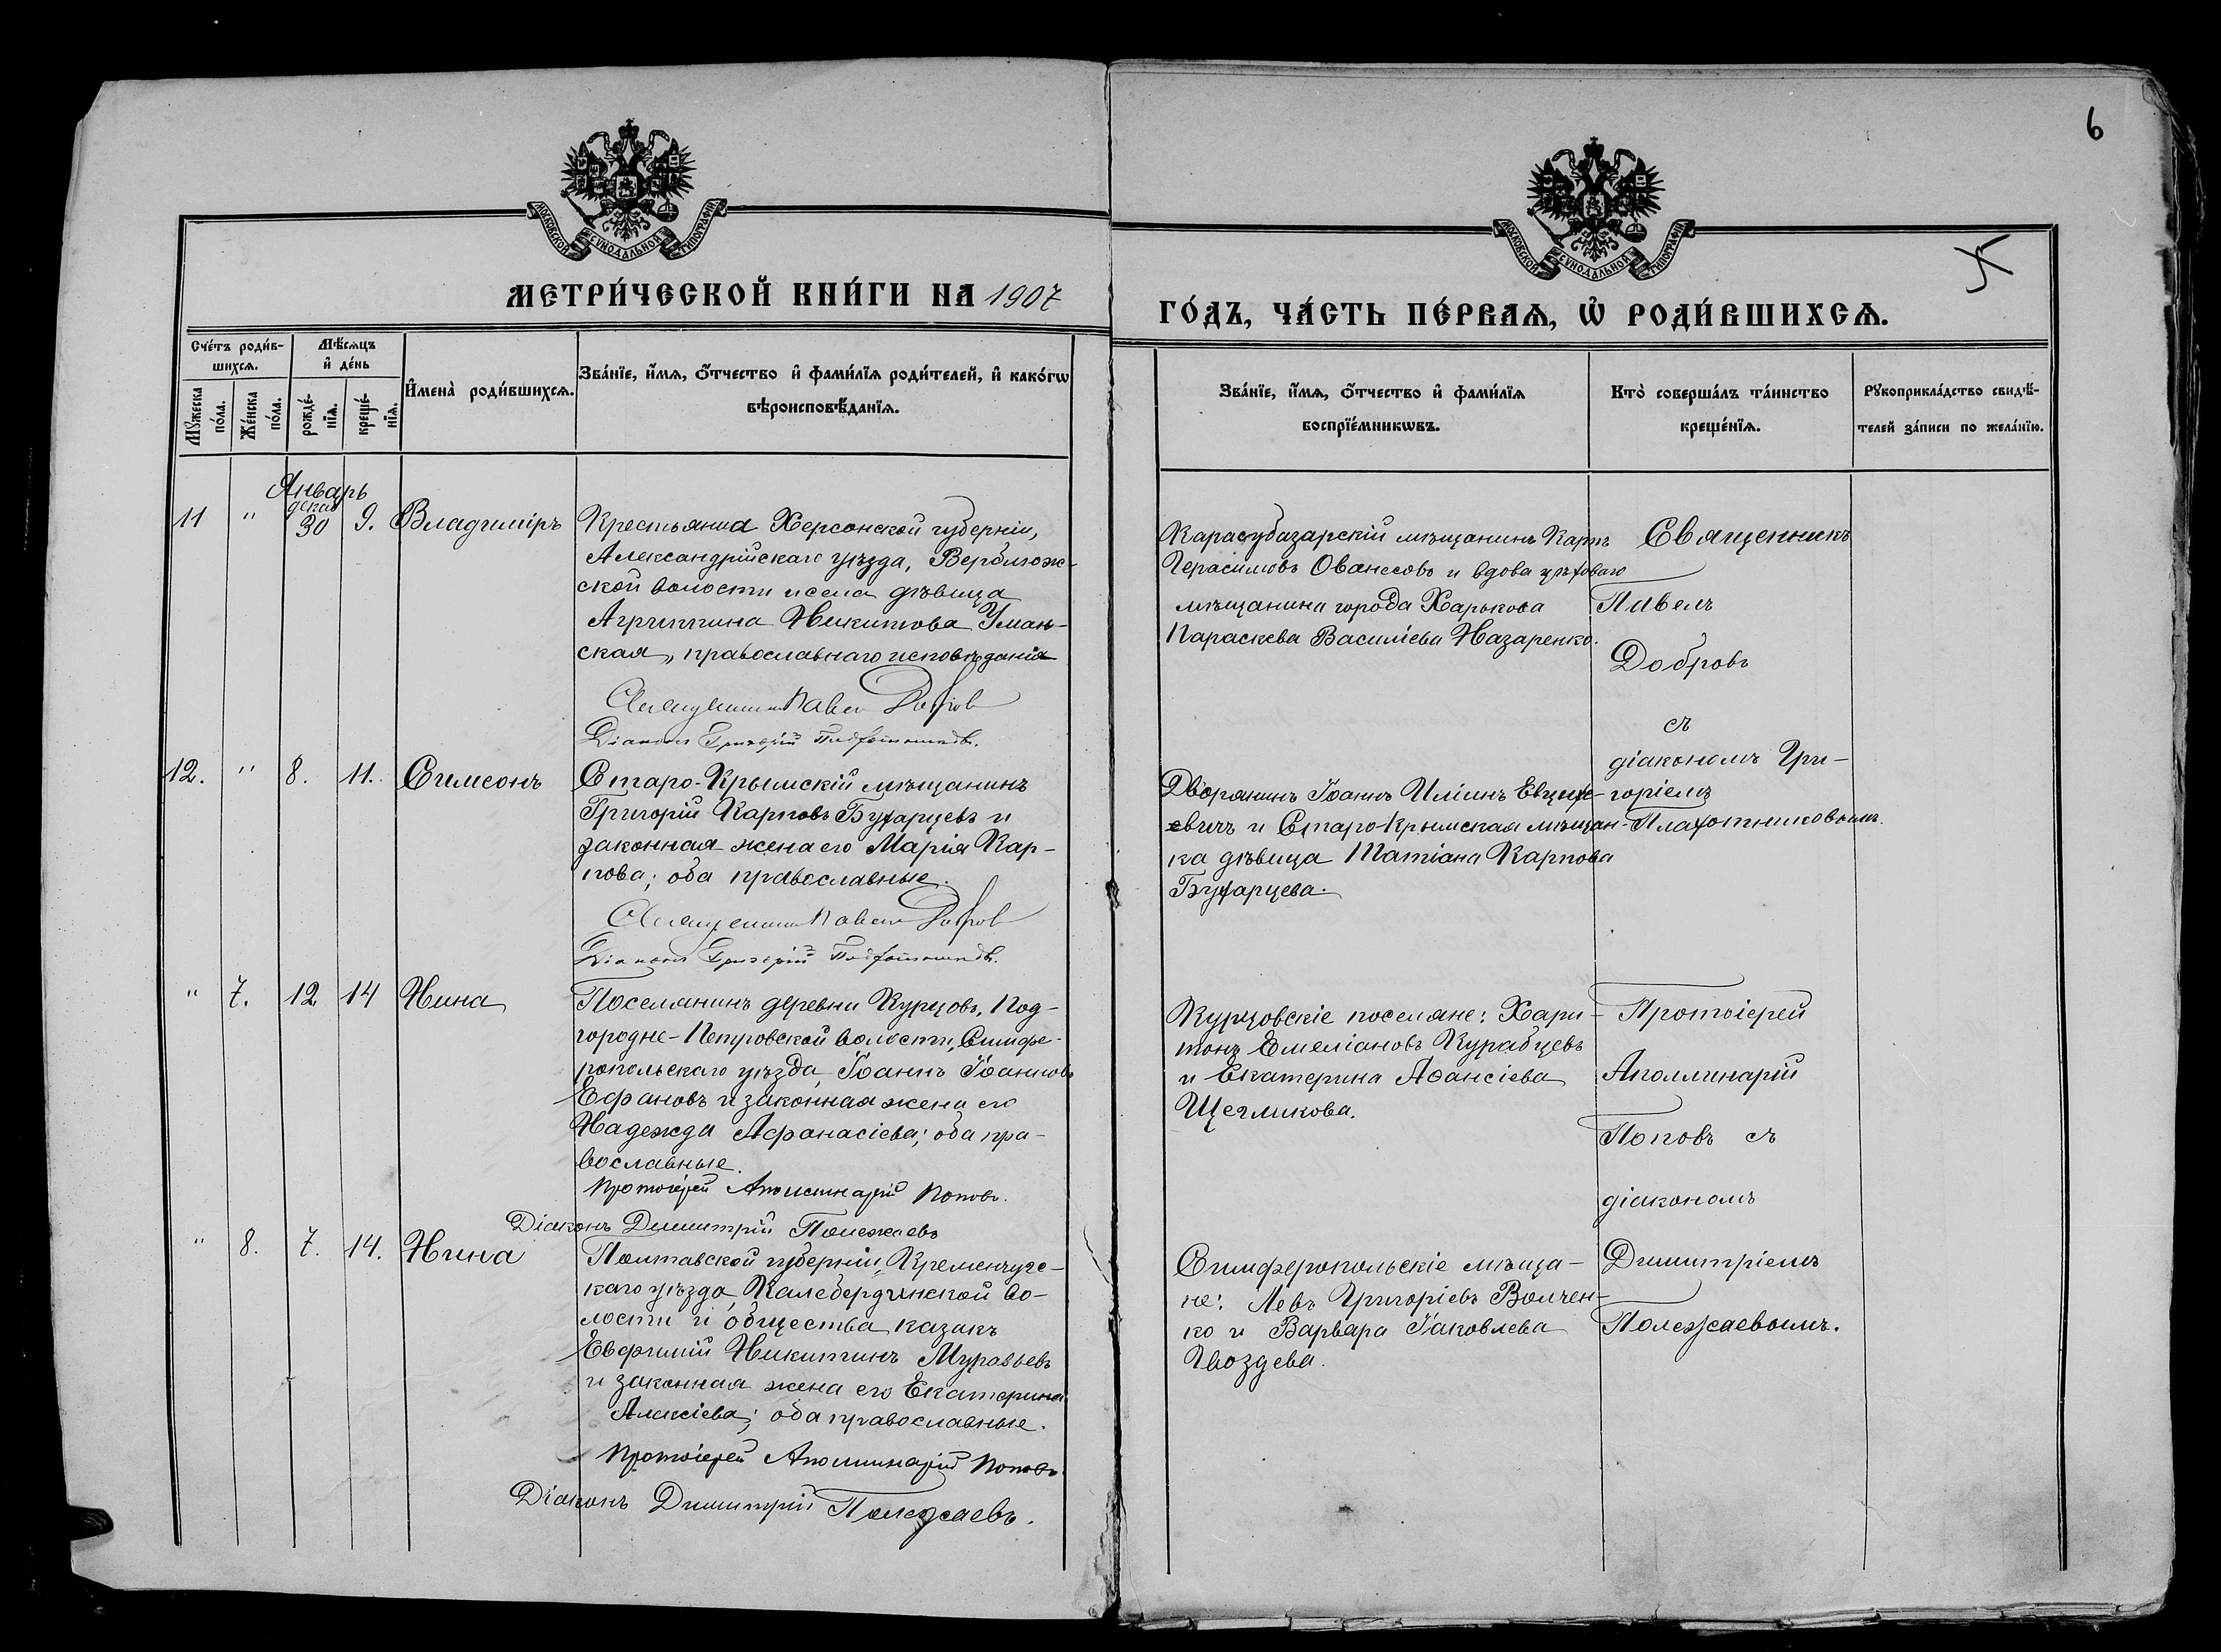 6
МОСКОВСКОЙ СѴНОДАЛЬНОЙ ТИПОГРАФІИ
МОСКОВСКОЙ СѴНОДАЛЬНОЙ ТИПОГРАФІИ
МЕТРИ́ЧЕСКОЙ КНИ́ГИ НА 1907
ГО́ДЪ, ЧА́СТЬ ПЕ́РВАЯ, Ѡ҆ РОДИ́ВШИХСѦ.
Сче́тъ роди́в-
шихсѧ.
Мꙋ́жеска
по́ла.
Же́нска
по́ла.
Мѣ́сѧцъ
и҆ де́нь
рожде́-
нїѧ.
креще́-
нїѧ.
И҆мена̀ роди́вшихсѧ.
Зва́нїе, и҆́мѧ, ѻ҆́тчество и҆ фами́лїѧ роди́телей, и҆ како́гѡ
вѣроисповѣ́данїѧ.
Зва́нїе, и҆́мѧ, ѻ҆́тчество и҆ фами́лїѧ
воспрїе́мникѡвъ.
Кто̀ соверша́лъ та́инство
креще́нїѧ.
Рꙋкоприкла́дство свидѣ́-
телей за́писи по жела́нїю.
Январь
декаб
11 " 30 9. Владиміръ
Крестьянка Херсонской губерніи,
Александрійскаго уѣзда, Верблюж-
ской волости и села дѣвица
Агриппина Никитова Уман-
ская, православнаго исповѣданія
Священникъ Павелъ Добровъ
Діаконъ Григорій
Карасубазарскій мѣщанинъ Карпъ
Герасимовъ Ованесовъ и вдова цеховаго
мѣщанина города Харькова
Параскева Василіева Назаренко.
Священникъ
Павелъ
Добровъ
съ
діакономъ Гри-
горіемъ
Плахотниковымъ.
12. " 8. 11. Симеонъ
Старо-Крымскій мѣщанинъ
Григорій Карповъ Бухарцевъ и
законная жена его Марія Кар-
пова; оба православные.
Священникъ Павелъ Добровъ
Діаконъ Григорій
Дворянинъ Іоаннъ Иліинъ
евичъ и Старо-Крымская мѣщан-
ка дѣвица Татіана Карпова
Бухарцева.
" 7. 12 14 Нина
Поселянинъ деревни Курцовъ, Под-
городне-Петровской волости, Симфе-
ропольскаго уѣзда, Іоаннъ Іоанновъ
Ефановъ и законная жена его
Надежда Афанасіева; оба пра-
вославные.
Протоіерей Аполлинарій Поповъ.
Діаконъ Димитрій Полежаевъ
Курцовскіе поселяне: Хари-
тонъ Емеліановъ Курабцевъ
и Екатерина Аѳансіева
Щегликова.
Протоіерей
Аполлинарій
Поповъ съ
діакономъ
Димитріемъ
Полежаевымъ.
" 8. 7. 14. Нина
Полтавской губерніи, Кременчугс-
каго уѣзда, Калебердинской во-
лости и общества казакъ
Евфимій Никитинъ Муравьевъ
и законная жена его Екатерина
Алексіева; оба православные.
Протоіерей Аполлинарій Поповъ.
Діаконъ Димитрій Полежаевъ.
Симферопольскіе мѣща-
не: Левъ Григоріевъ Волчен-
ко и Варвара Іаковлева
Гвоздева.